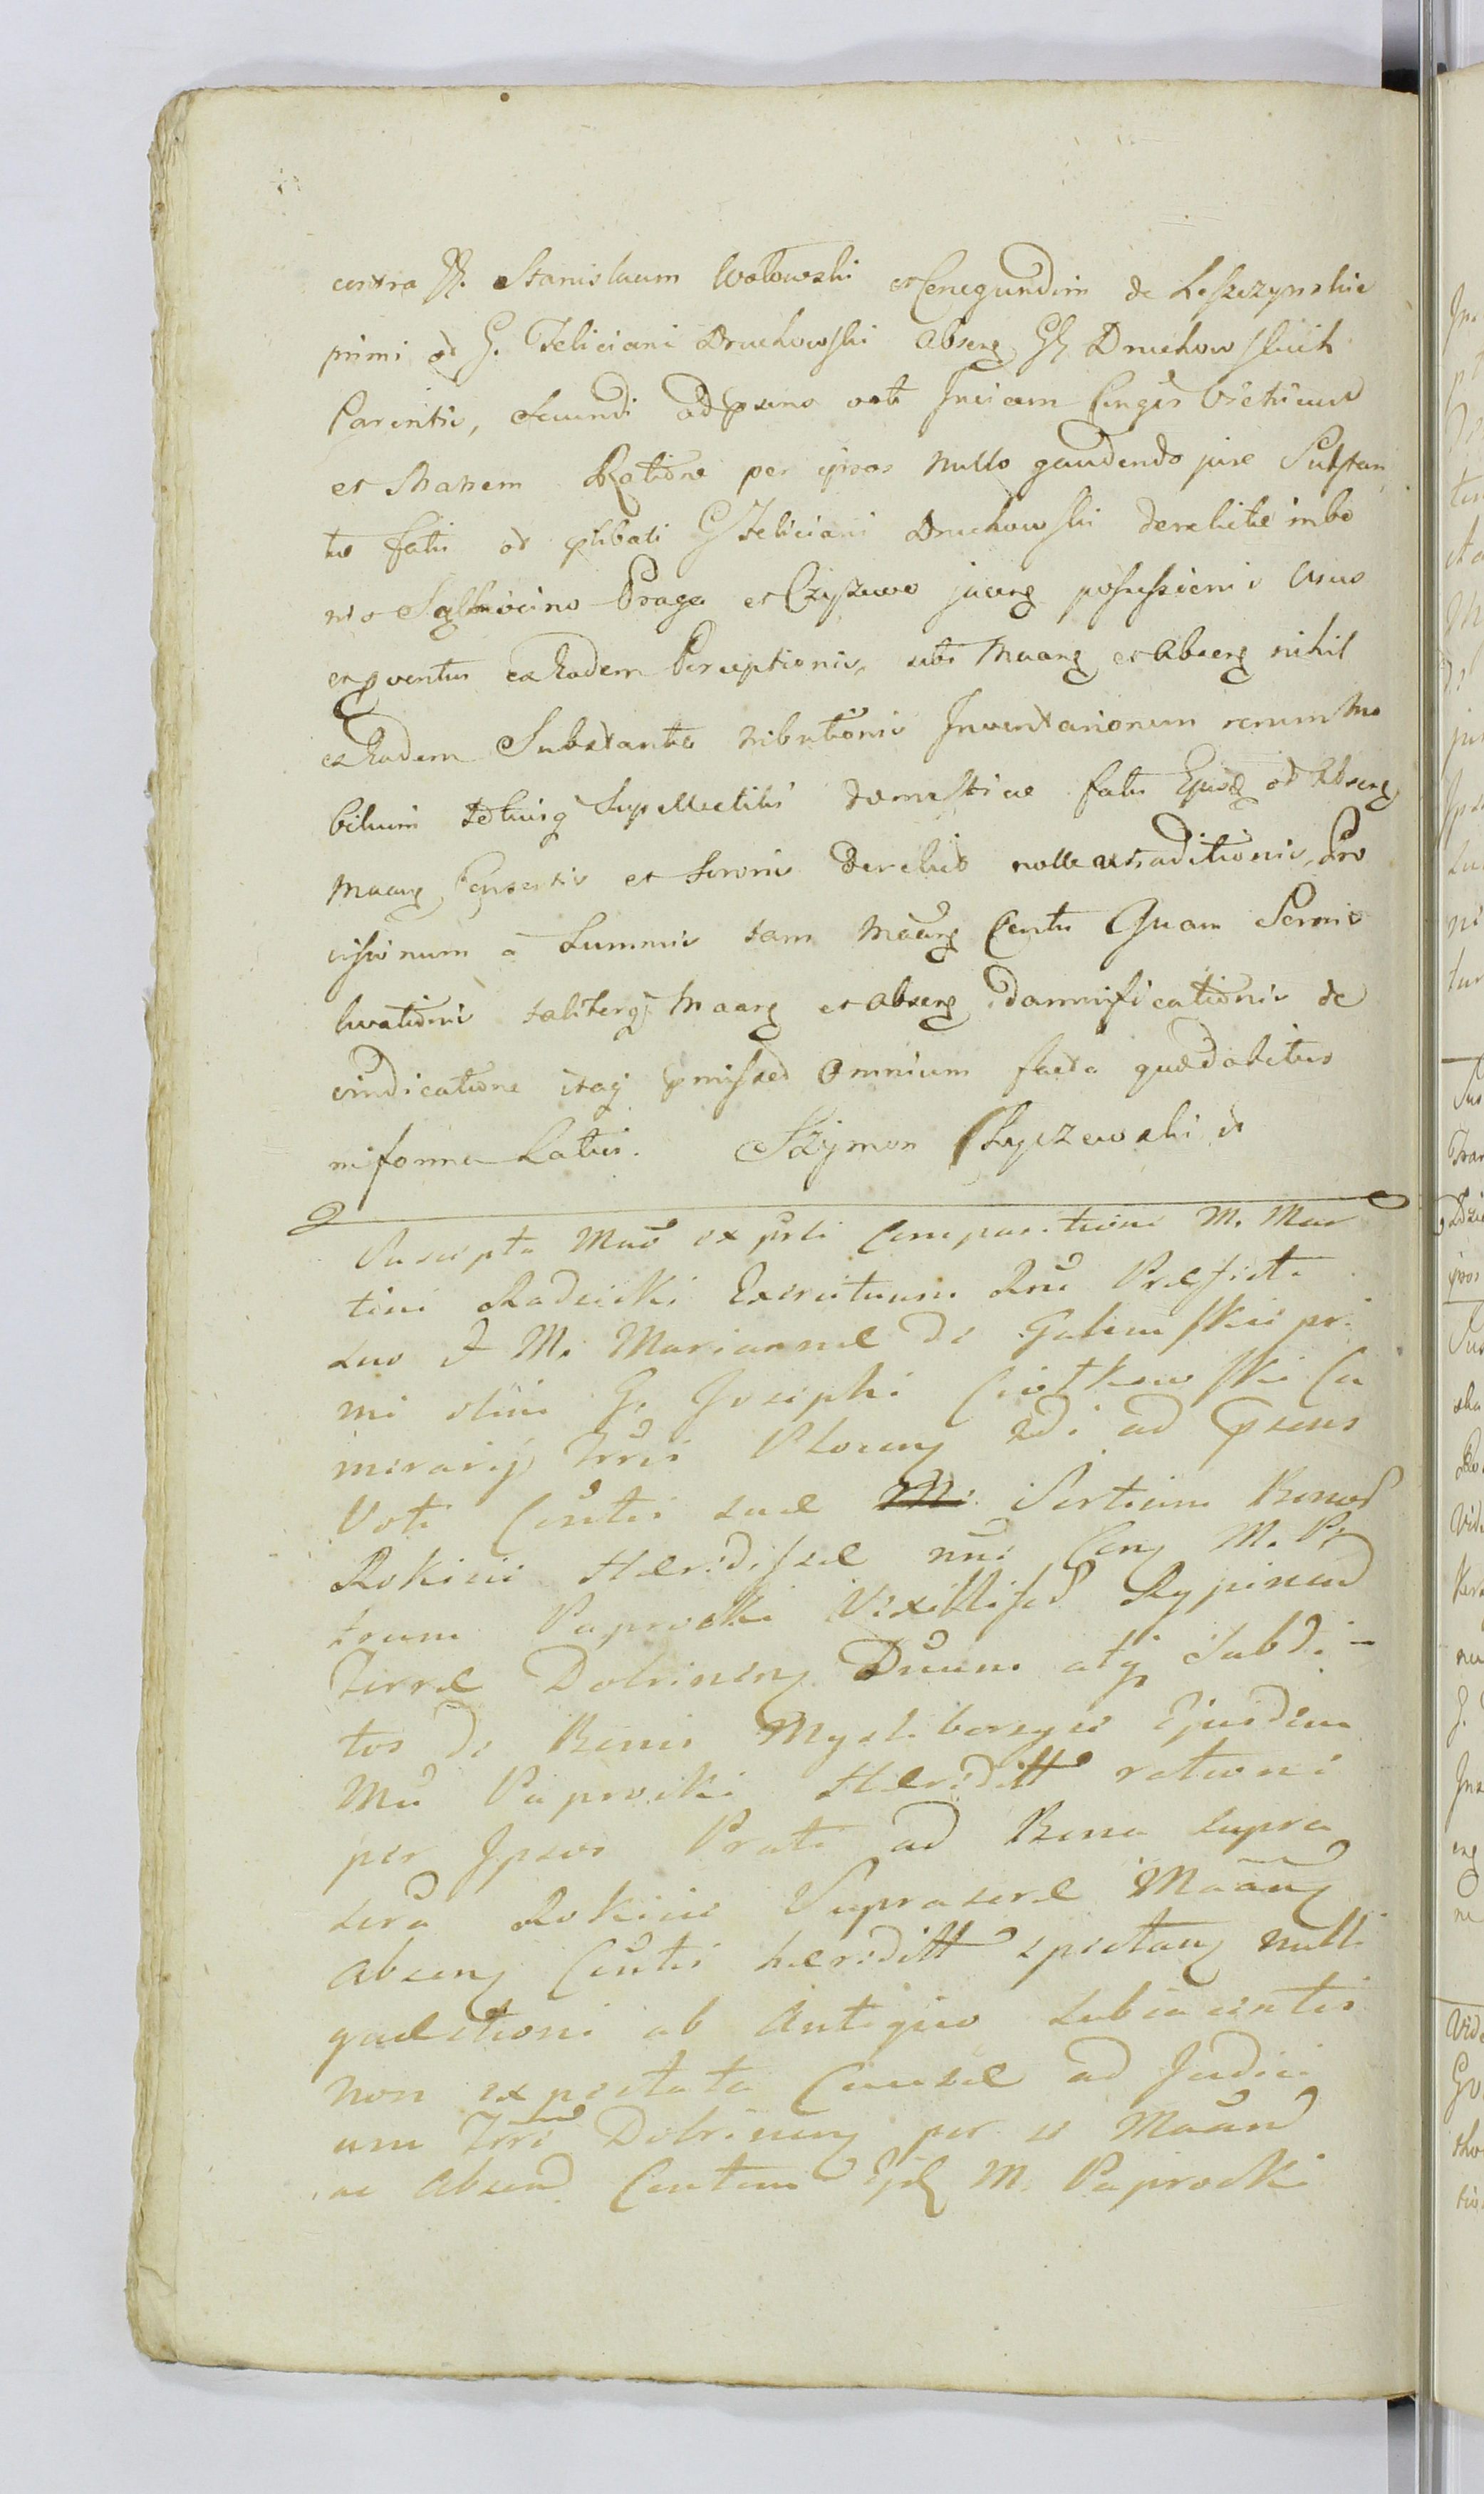 contra GG. Stanislaum Wołowski et Cunegundim de Leszczynskie
primi od G. Feliciani Druchowski abseng GG Druchowskich
Parentis, secundi ad psens voti Iuncam Conges Vietricum
et Matrem Ratione per ipsos nullo gaudendo jure Substan
tiæ fatis od plibati G Feliciani Druchowski derelictæ in bo
nis Praga et Czyżewo jaceng possessionis Usus
et pventus ex Eadem Perceptionis, sibi Maang et abseng nihil
ex Eadem Substantia tributionis Inventariorum rerum Mo
bilium totiusq Suppellectilis domesticæ fatis Ejusd od Abseng
Maang Consortis et Sororis derelict nolle extraditionis, Pro
visionum a Summis tam Maang Contis Quam Sororis
taliterq Maang et abseng damnificationis de
vindicatione itaq pmissor Omnium facta quæ dabitur
in forma Latius. Szymon Chyczewski
Suscepta Maō ex psti Comparitione M. Mar
tini Radzicki Exercituum Præfecti
suo et M. Mariannæ de Galemskie pri
mi olim G. Josephi Ciołkowski Ca
merarij Trris Plocen 2di ad psens
Voti Contis suæ Sortium Bonor
Rokicie Hæredissæ nne Cong M. Pe
trum Paprocki Vexilliferd Rypinend
Terræ Dobrinen Dnum atq Subdi-
tos de Bonis Mysliborzyce Ejusdem
Mci Paprocki Hereditt ratione
per Ipsos Prati ad Bona supra
scra Rokicie Suprascræ Maang
Abseng Contis hæreditt spectang nulli
quæstioni ab Antiquo subiacentis
non expectata Causæ ad Judici
um Trrē Dobrineng per se Maand
ac Absend Contem Ejsd M. Paprocki